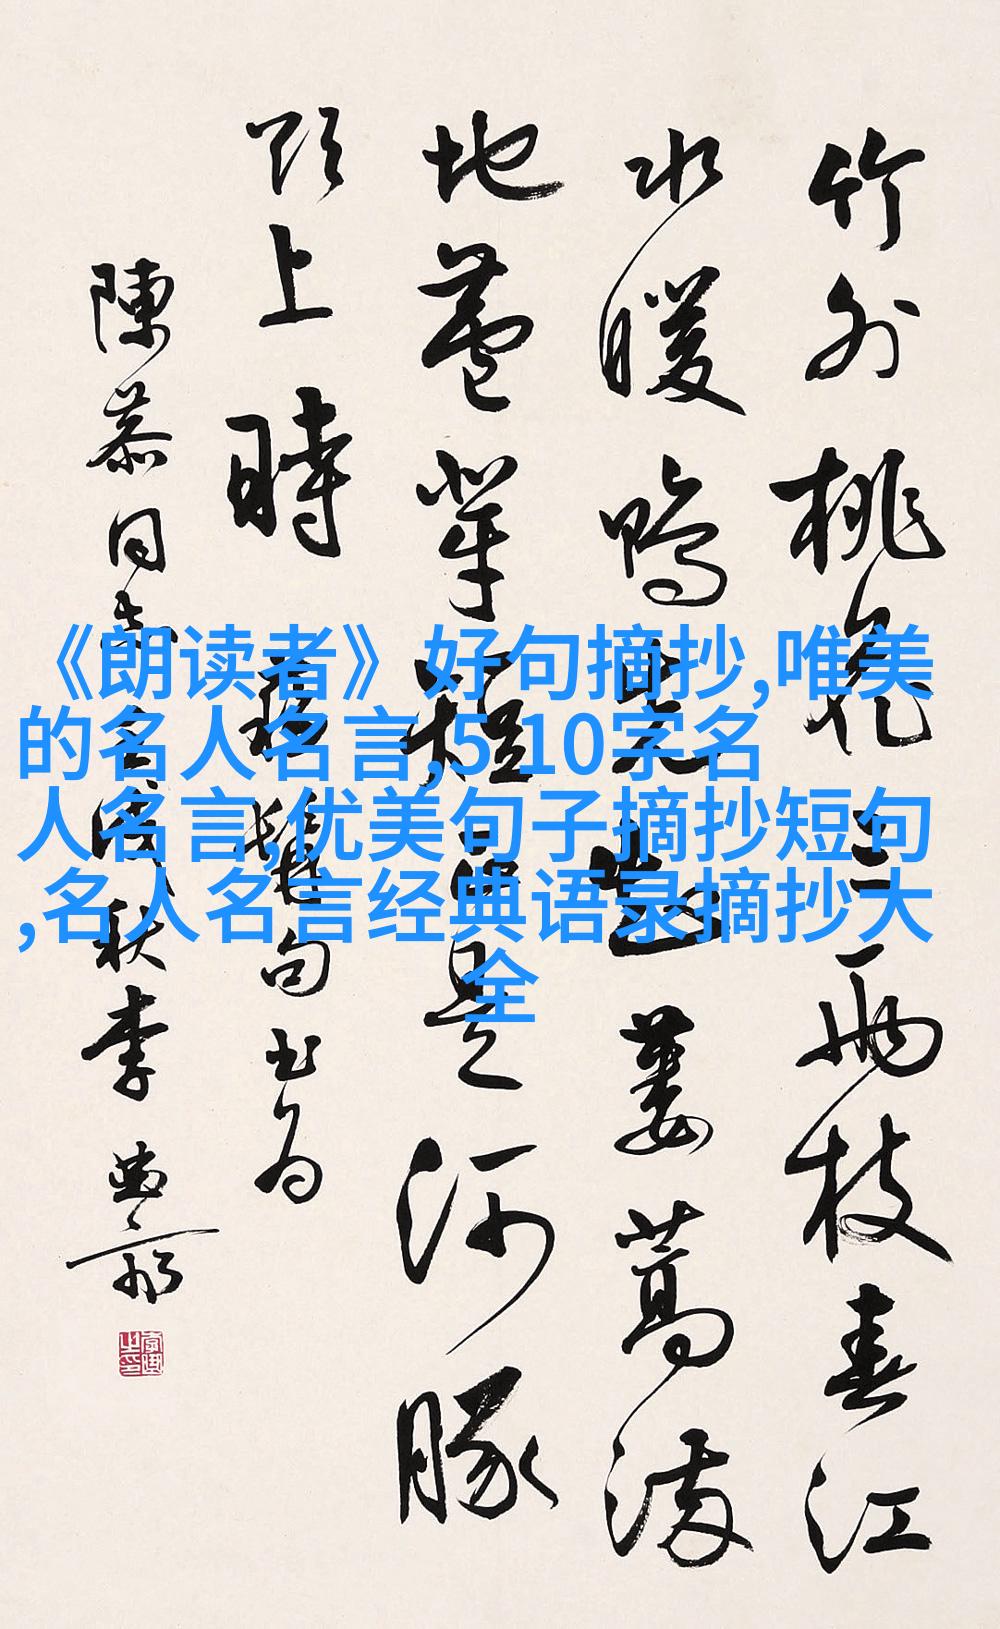 《朗读者》好句摘抄,唯美
的名人名言,5 10字名
人名言,优美句子摘抄短句
,名人名言经典语录摘抄大
全
竹外桃花三兩枝春江
水暖鴨先知蔞蒿滿
地蘆芽短正是河豚
欲上時
蘇髯句书为
陳慕同志 秋李